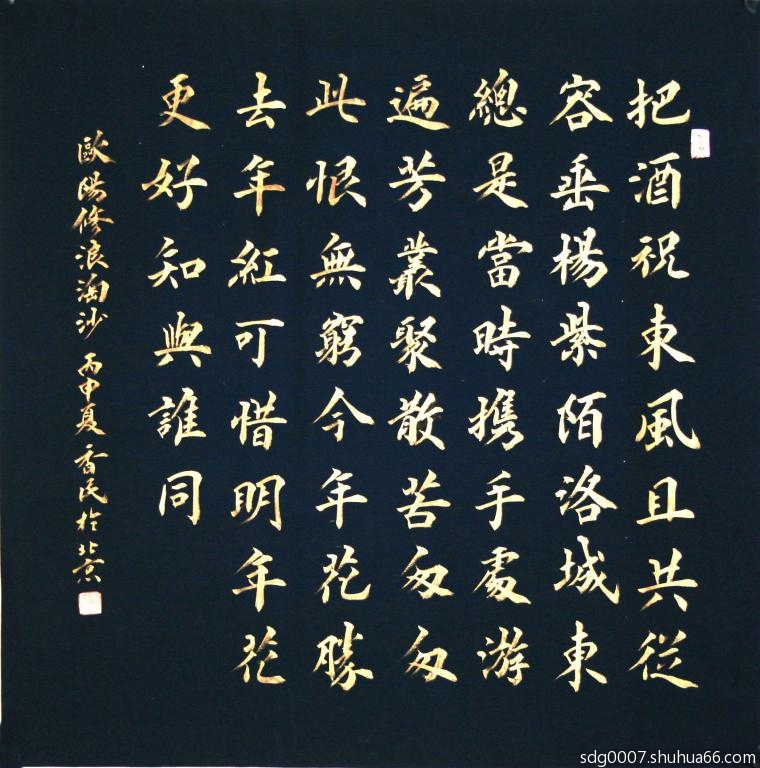 把酒祝東風且共從
容垂楊紫陌洛城東
總是當時携手處游
遍芳叢聚散苦匆匆
此恨無窮今年花勝
去年紅可惜明年花
更好知與誰同
歐陽修浪淘沙 丙申夏 香民於北京
sdg0007.shuhua66.com